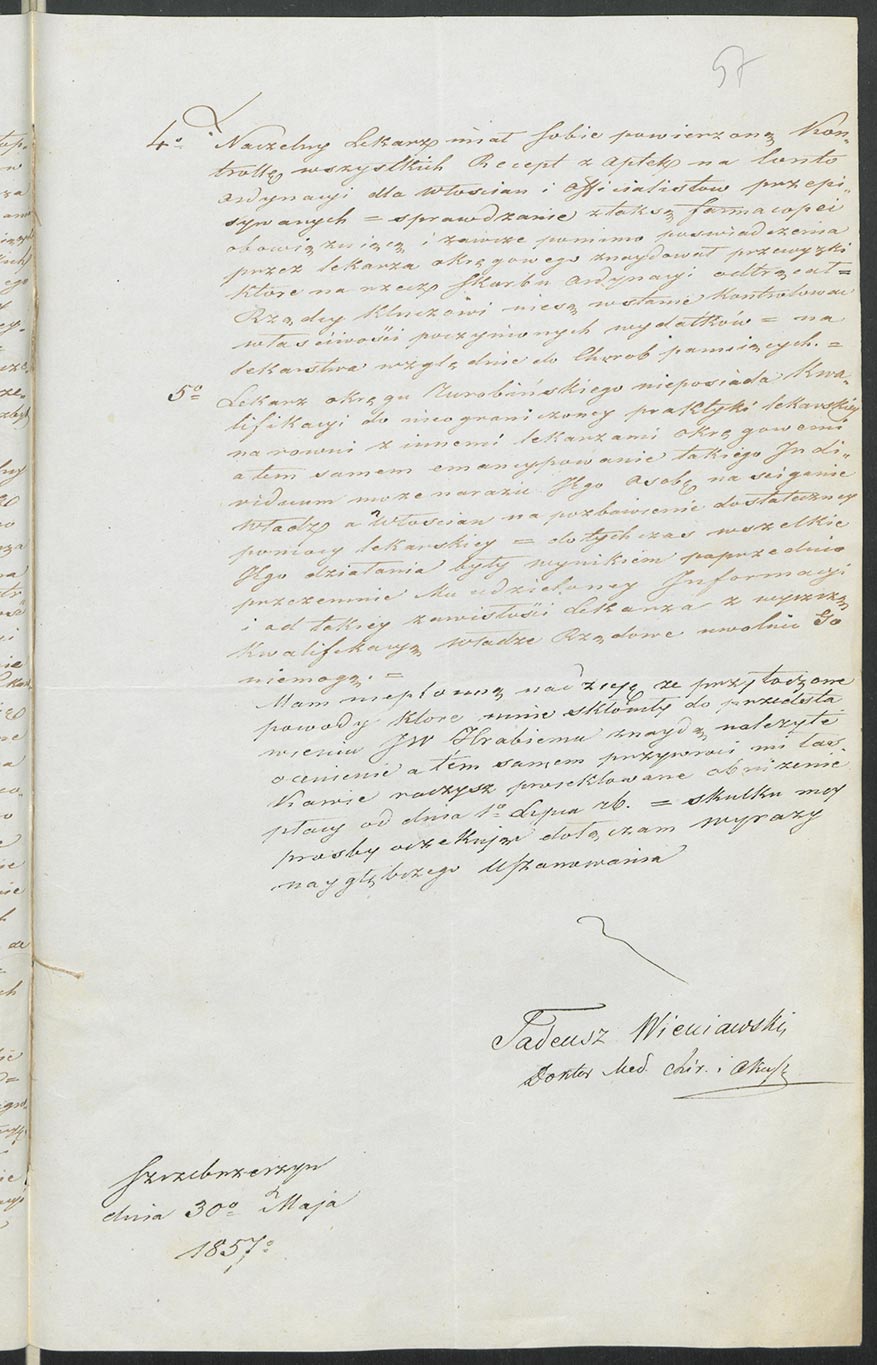 57
4o Naczelny Lekarz miał sobie powierzoną Kon-
trollę wszystkich Recept z Aptek na konto
Ordynacyi dla Włoscian i Officialistow przepi-
sywanych = sprawdzanie z taksą farmacopei
obowiązuiącą i zawsze pomimo poswiadczenia
przez lekarza okręgowego znaydował przewyżki
ktore na rzecz Skarbu Ordynacyi odtrącał =
Rządcy Kluczowi niesą wstanie Kontrolować
własciwości poczynionych wydatków = na
lekarstwa względnie do Chorob panuiących. =
5o Lekarz okręgu Turobińskiego nieposiada Kwa-
lifikacyi do nieograniczoney praktyki lekarskiey
narowni z innemi lekarzami okręgowemi
atem samem emancypowanie takiego Indi-
viduum moze narazic Jego Osobę na sciganie
Władz a Włoscian na pozbawienie dostateczney
pomocy lekarskiey = dotychczas wszelkie
Jego działania były wynikiem poprzednio
przezemnie Mu udzieloney Informacyi
i od takiey zawisłości Lekarza z wyższą
Kwalifikacyą Władze Rządowe uwolnic Go
niemogą. =
Mam niepłonną nadzieję ze przytoczone
powody ktore mnie skłoniły do przedsta
wienia JW Hrabiemu znaydą należyte
ocenienie a tém samem przywroci mi łas-
kawie raczysz proiektowane obniżenie
płacy od dnia 1o Lipca rb. = skutku mey
prosby oczekując dołączam wyrazy
naygłębszego Uszanowania
Tadeusz Wieniawski
Doktor Med. Chir. i Akusz
Szczebrzeszyn
dnia 30o Maja
1857o